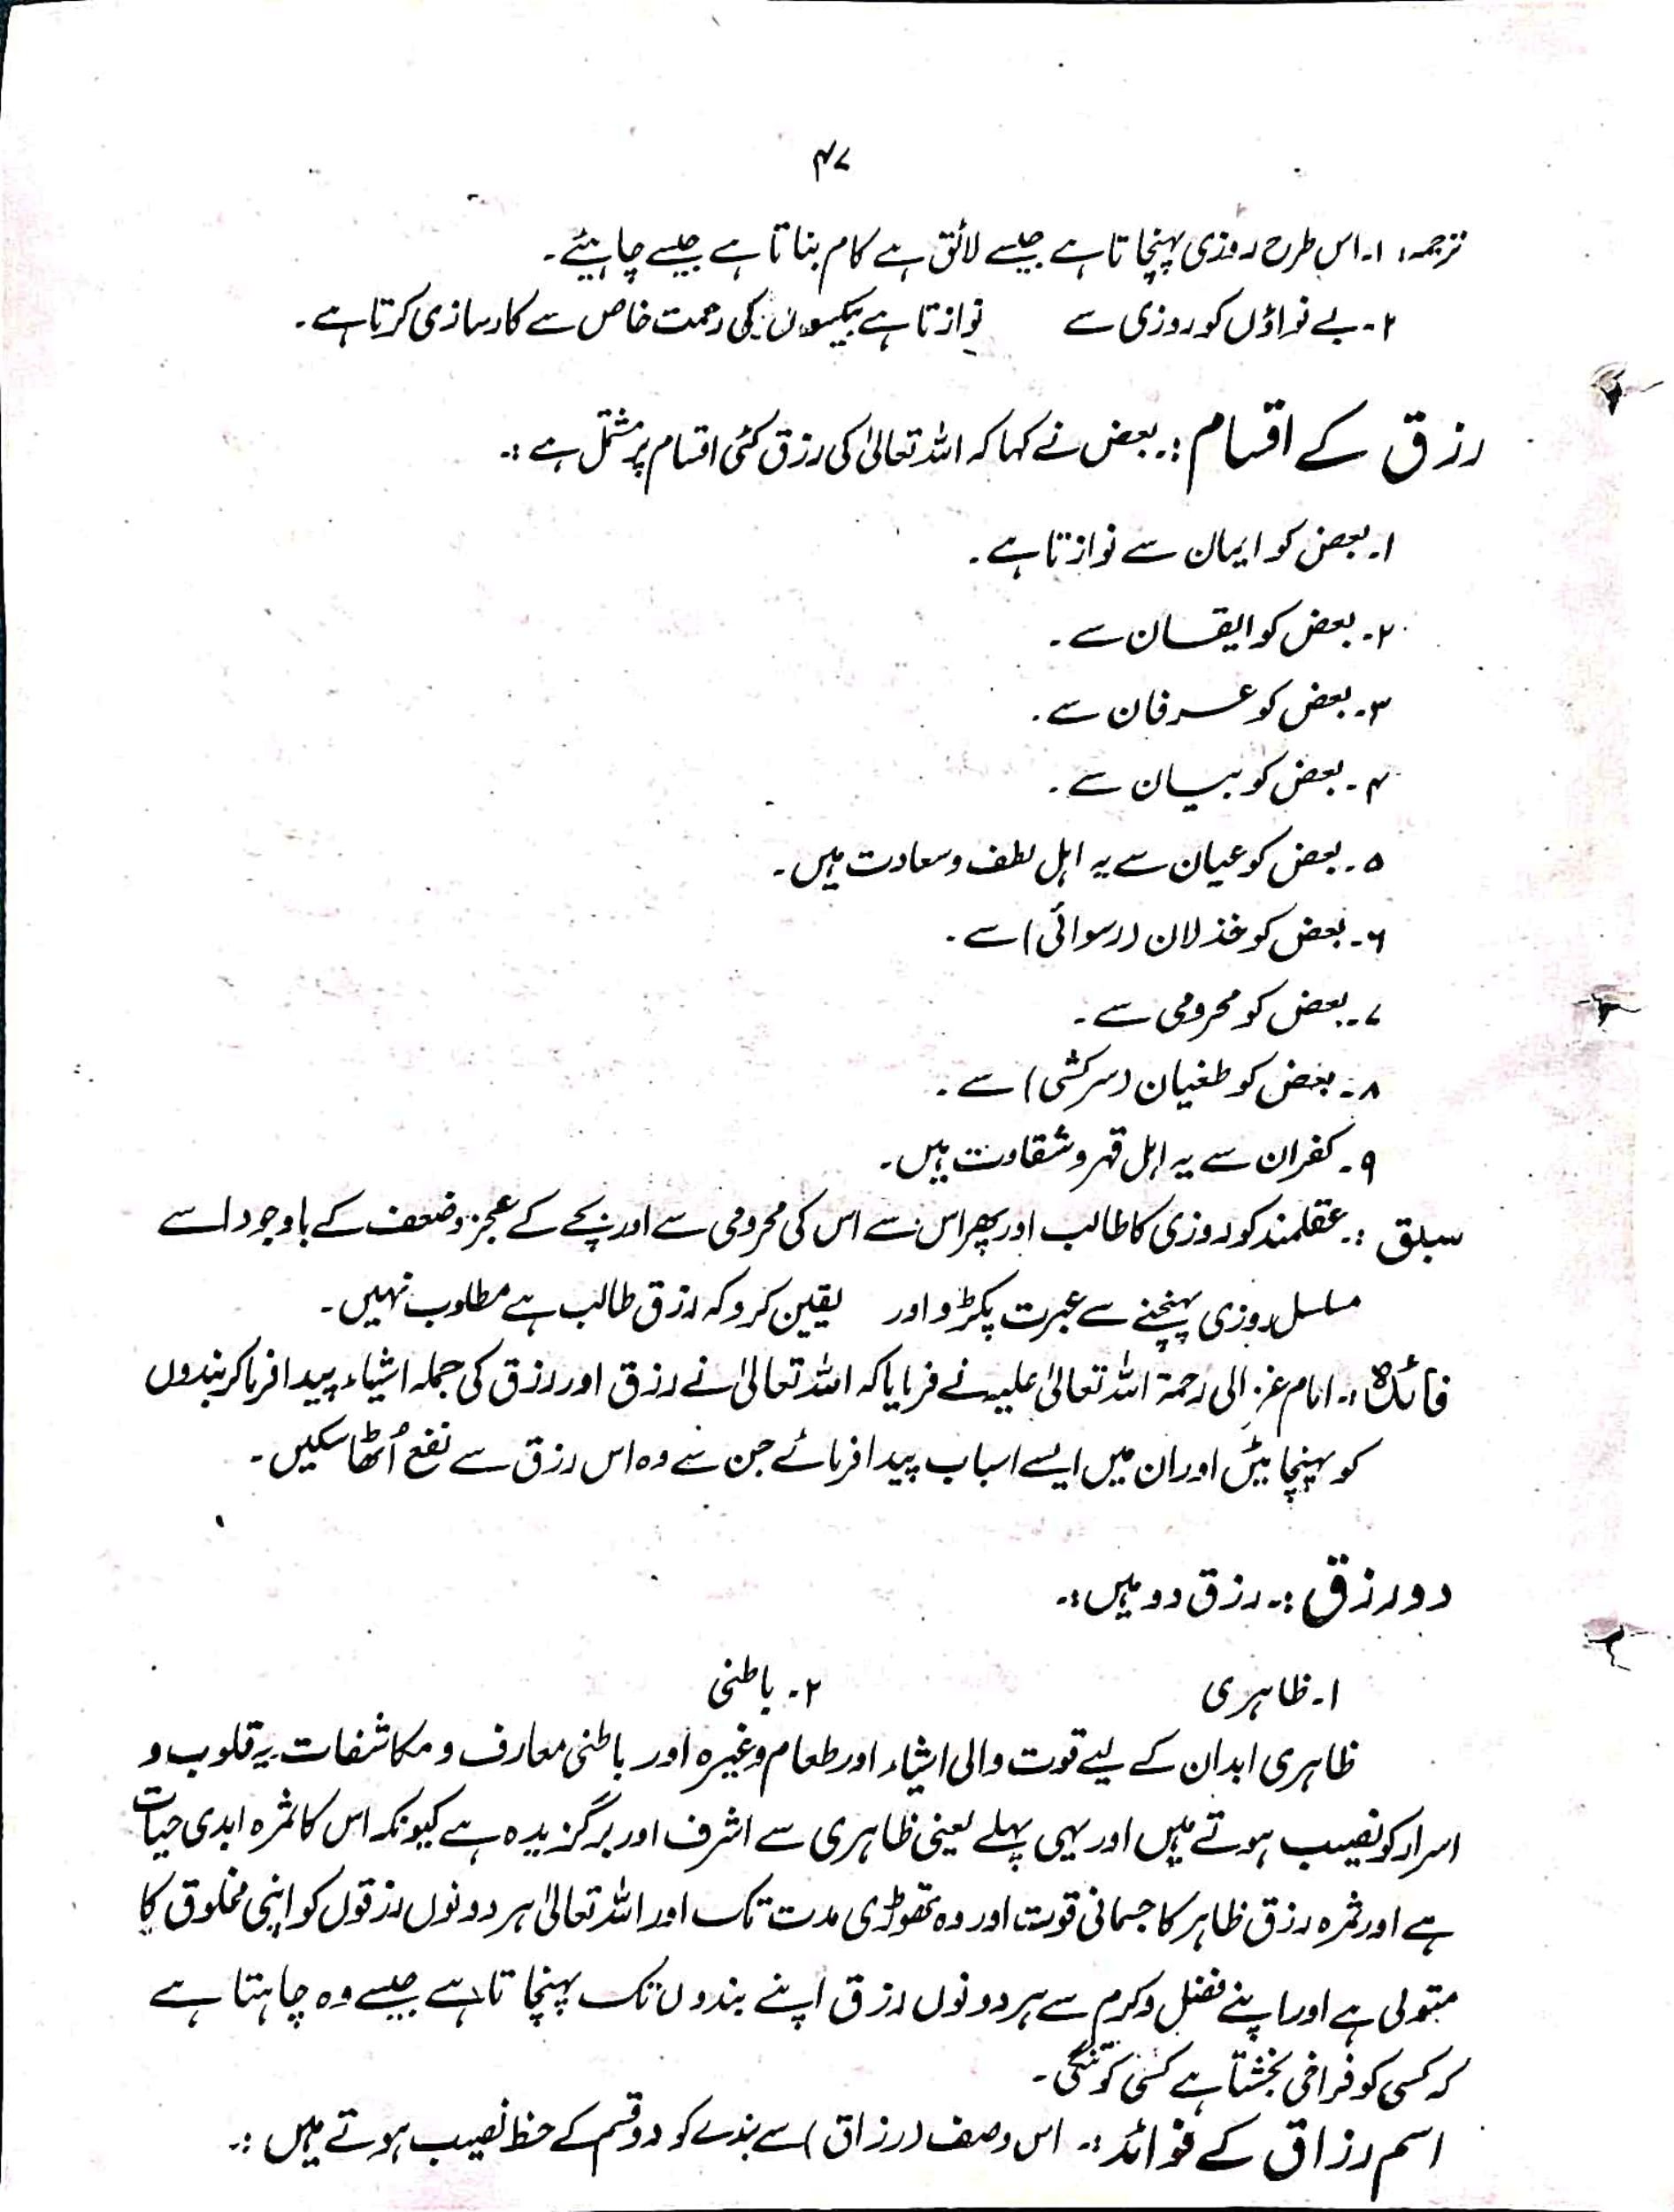 ۴۷
ترجمہ: ۱۔ اس طرح روزی پہنچاتا ہے جیسے لائق ہے کام بناتا ہے جیسے چاہیئے۔
۲۔ بے نواؤں کو روزی سے نوازتا ہے بیکسوں کی رحمت خاص سے کارسازی کرتا ہے۔
رزق کے اقسام :۔ بعض نے کہا کہ اللہ تعالیٰ کی رزق کئی اقسام پر مشتمل ہے :۔
۱۔ بعض کو ایمان سے نوازتا ہے۔
۲۔ بعض کو ایقان سے۔
۳۔ بعض کو عرفان سے۔
۴۔ بعض کو بیان سے۔
۵۔ بعض کو عیان سے یہ اہل لطف و سعادت ہیں۔
۶۔ بعض کو خذلان (رسوائی) سے۔
۷۔ بعض کو محرومی سے۔
۸۔ بعض کو طغیان (سرکشی) سے۔
۹۔ کفران سے یہ اہل قہر و شقاوت ہیں۔
سبق :۔ عقلمند کو روزی کا طالب اور پھر اس سے اس کی محرومی سے اور بچے کے عجز و ضعف کے باوجود اسے
مسلسل روزی پہنچنے سے عبرت پکڑو اور یقین کرو کہ رزق طالب ہے مطلوب نہیں۔
فائدہ :۔ امام غزالی رحمۃ اللہ تعالیٰ علیہ نے فرمایا کہ اللہ تعالیٰ نے رزق اور رزق کی جملہ اشیاء پیدا فرما کر بندوں
کو پہنچائیں اور ان میں ایسے اسباب پیدا فرمائے جن سے وہ اس رزق سے نفع اُٹھا سکیں۔
دو رزق :۔ رزق دو ہیں :۔
۱۔ ظاہری ۲۔ باطنی
ظاہری ابدان کے لیے قوت والی اشیاء اور طعام وغیرہ اور باطنی معارف و مکاشفات یہ قلوب و
اسرار کو نصیب ہوتے ہیں اور یہی پہلے یعنی ظاہری سے اشرف اور برگزیدہ ہے کیونکہ اس کا ثمرہ ابدی حیات
ہے اور ثمرہ رزق ظاہر کا جسمانی قوت اور وہ تھوڑی مدت تک اور اللہ تعالیٰ ہر دونوں رزقوں کو اپنی مخلوق کا
متولی ہے اور اپنے فضل و کرم سے ہر دونوں رزق اپنے بندوں تک پہنچاتا ہے جیسے وہ چاہتا ہے
کہ کسی کو فراخی بخشتا ہے کسی کو تنگی۔
اسم رزاق کے فوائد :۔ اس وصف (رزاق) سے بندے کو دو قسم کے حظ نصیب ہوتے ہیں :۔